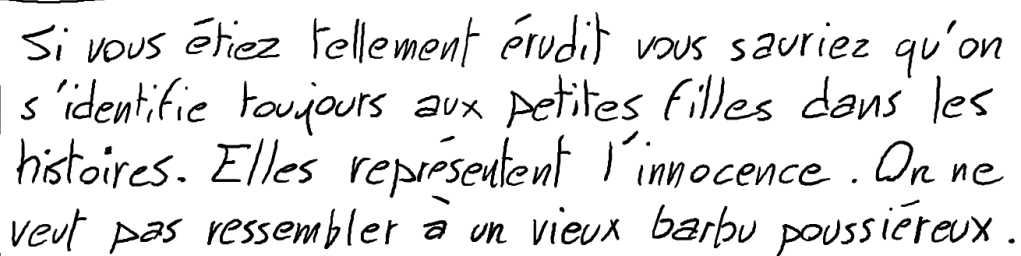 Si vous étiez tellement érudit vous sauriez qu'on
s'identifie toujours aux petites filles dans les
histoires. Elles représentent l'innocence. On ne
veut pas ressembler à un vieux barbu poussiéreux.